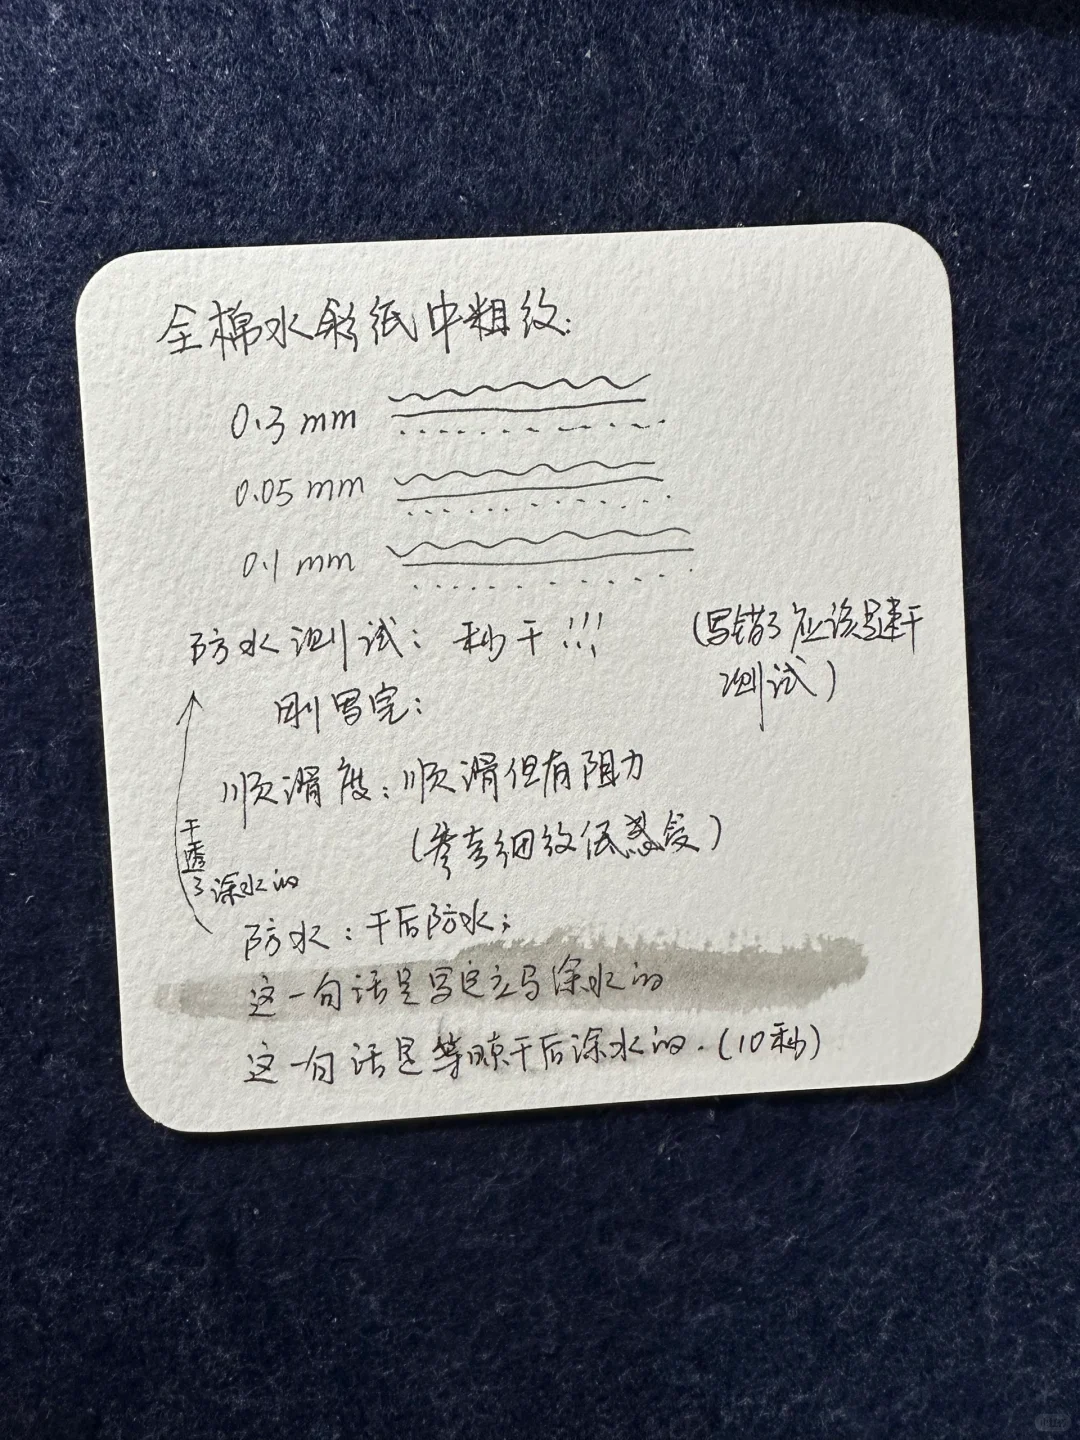 全棉水彩纸中粗纹:
0.3 mm
0.05 mm
0.1 mm
防水测试: 秒干!!!
(写错了应该是速干
测试)
刚写完:
顺滑度: 顺滑但有阻力
(参考细纹纸感受)
干透了涂水的
防水: 干后防水;
这一句话是写完立马涂水的
这一句话是等晾干后涂水的.(10秒)